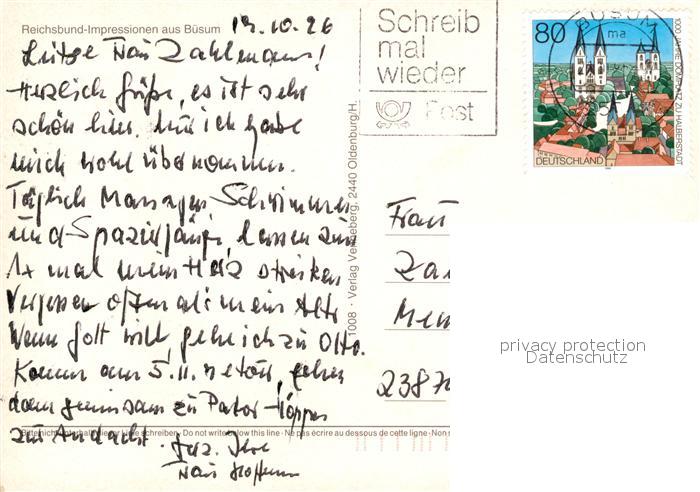 Reichsbund-Impressionen aus Büsum
13.10.96
Liebe Frau Zahlmann!
Herzlich Grüße, es ist sehr
schön hier. Nur ich habe
mich wohl übernommen.
Täglich Massagen Schwimmen
und Spaziergänge, lassen zum
1x mal mein Herz streiken
Vergessen oft mein Alter
Wenn Gott will, gehe ich zu Otto.
Komme am 5.11. zurück, gehen
dann gemeinsam zu Pastor
zur Andacht. Herz. Ihre
Frau Hoffmann
1008 · Verlag Venneberg, 2440 Oldenburg/H.
Bitte nicht unterhalb dieser Linie schreiben · Do not write below this line · Ne pas écrire au dessous de cette ligne · Non
Schreib
mal
wieder
Post
BÜSUM
ma
80
1000 JAHRE DOMPLATZ ZU HALBERSTADT
DEUTSCHLAND
Frau
Za
Me
2387
privacy protection
Datenschutz